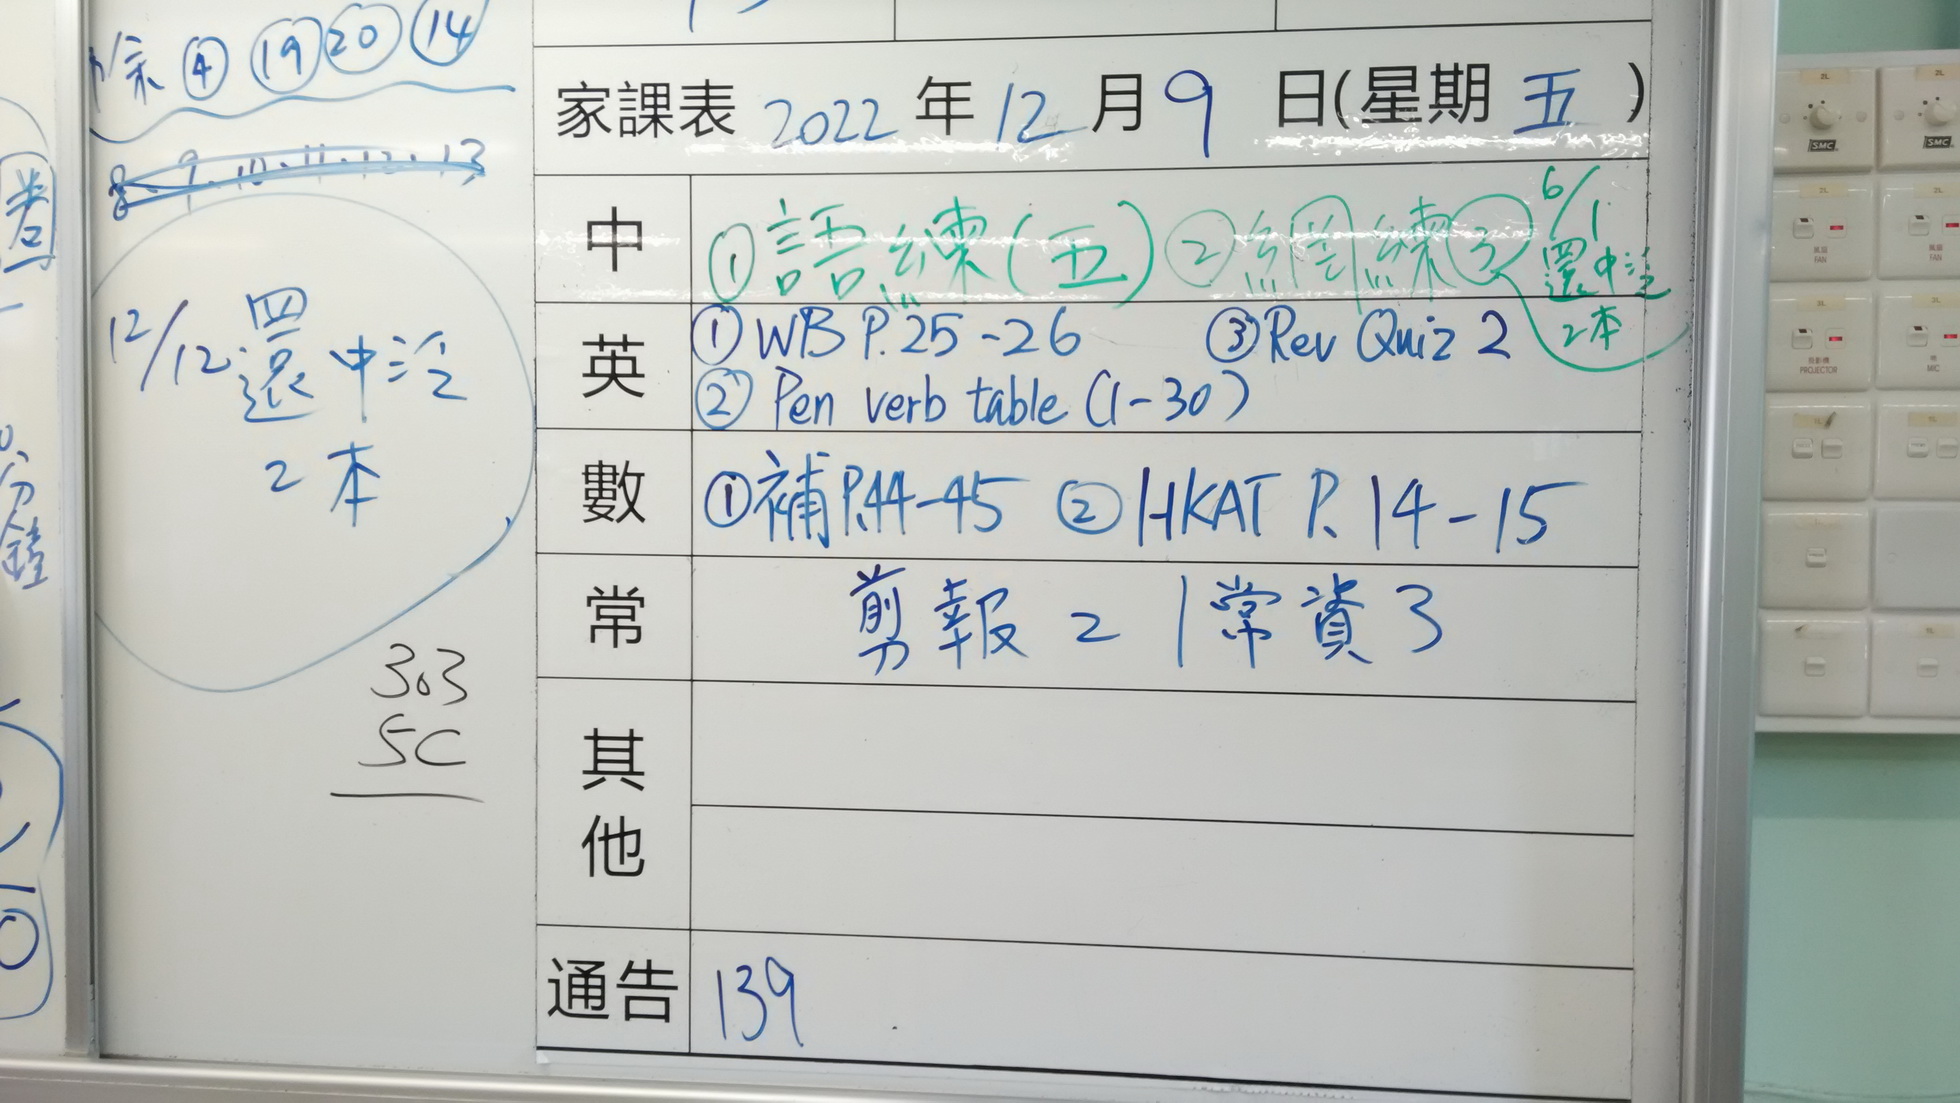 ④ ⑲ ⑳ ⑭
8 . 9 . 10 . 11 . 12 . 13
12/12 還中泛
2本
303
5C
家課表 2022 年 12 月 9 日(星期 五 )
中 ① 語練(五) ② 網練③
6/1
還中泛
2本
英 ① WB P.25-26 ③ Rev Quiz 2
② Pen verb table (1-30)
數 ① 補P.44-45 ② HKAT P.14-15
常 剪報 2 | 常資 3
其他
通告 139
卷
分鐘
2L
2L
SMC
SMC
風扇
FAN
風扇
FAN
投影機
PROJECTOR
咪
MIC